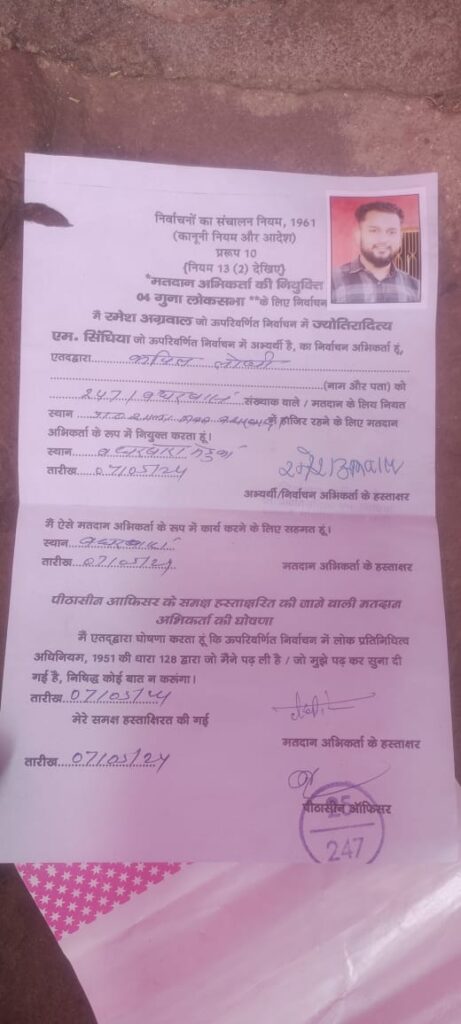 निर्वाचनों का संचालन नियम, 1961
(कानूनी नियम और आदेश)
प्ररूप 10
{नियम 13 (2) देखिए}
*मतदान अभिकर्ता की नियुक्ति
04 गुना लोकसभा **के लिए निर्वाचन
मैं रमेश अग्रवाल जो ऊपरिवर्णित निर्वाचन में ज्योतिरादित्य
एम. सिंधिया जो ऊपरिवर्णित निर्वाचन में अभ्यर्थी है, का निर्वाचन अभिकर्ता हूं,
एतदद्वारा कपिल लोधी
(नाम और पता) को
247 / संख्याक वाले / मतदान के लिय नियत
स्थान को हाजिर रहने के लिए मतदान
अभिकर्ता के रूप में नियुक्त करता हूं।
स्थान
तारीख 07/05/24
रमेश अग्रवाल
अभ्यर्थी/निर्वाचन अभिकर्ता के हस्ताक्षर
मैं ऐसे मतदान अभिकर्ता के रूप में कार्य करने के लिए सहमत हूं।
स्थान
तारीख 07/05/24
मतदान अभिकर्ता के हस्ताक्षर
पीठासीन आफिसर के समक्ष हस्ताक्षरित की जाने वाली मतदान
अभिकर्ता की घोषणा
मैं एतद्द्वारा घोषणा करता हूं कि ऊपरिवर्णित निर्वाचन में लोक प्रतिनिधित्व
अधिनियम, 1951 की धारा 128 द्वारा जो मैंने पढ़ ली है / जो मुझे पढ़ कर सुना दी
गई है, निषिद्ध कोई बात न कलंगा।
तारीख 07/05/24
मेरे समक्ष हस्ताक्षिरत की गई
मतदान अभिकर्ता के हस्ताक्षर
तारीख 07/05/24
पीठासीन ऑफिसर
25
247